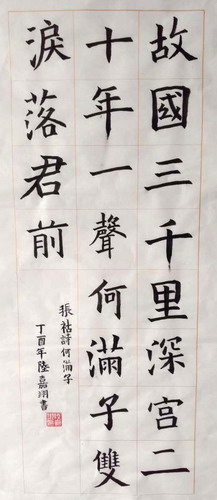 故國三千里深宫二
十年一聲何滿子雙
淚落君前
張祜詩何滿子
丁酉年陸嘉翊書